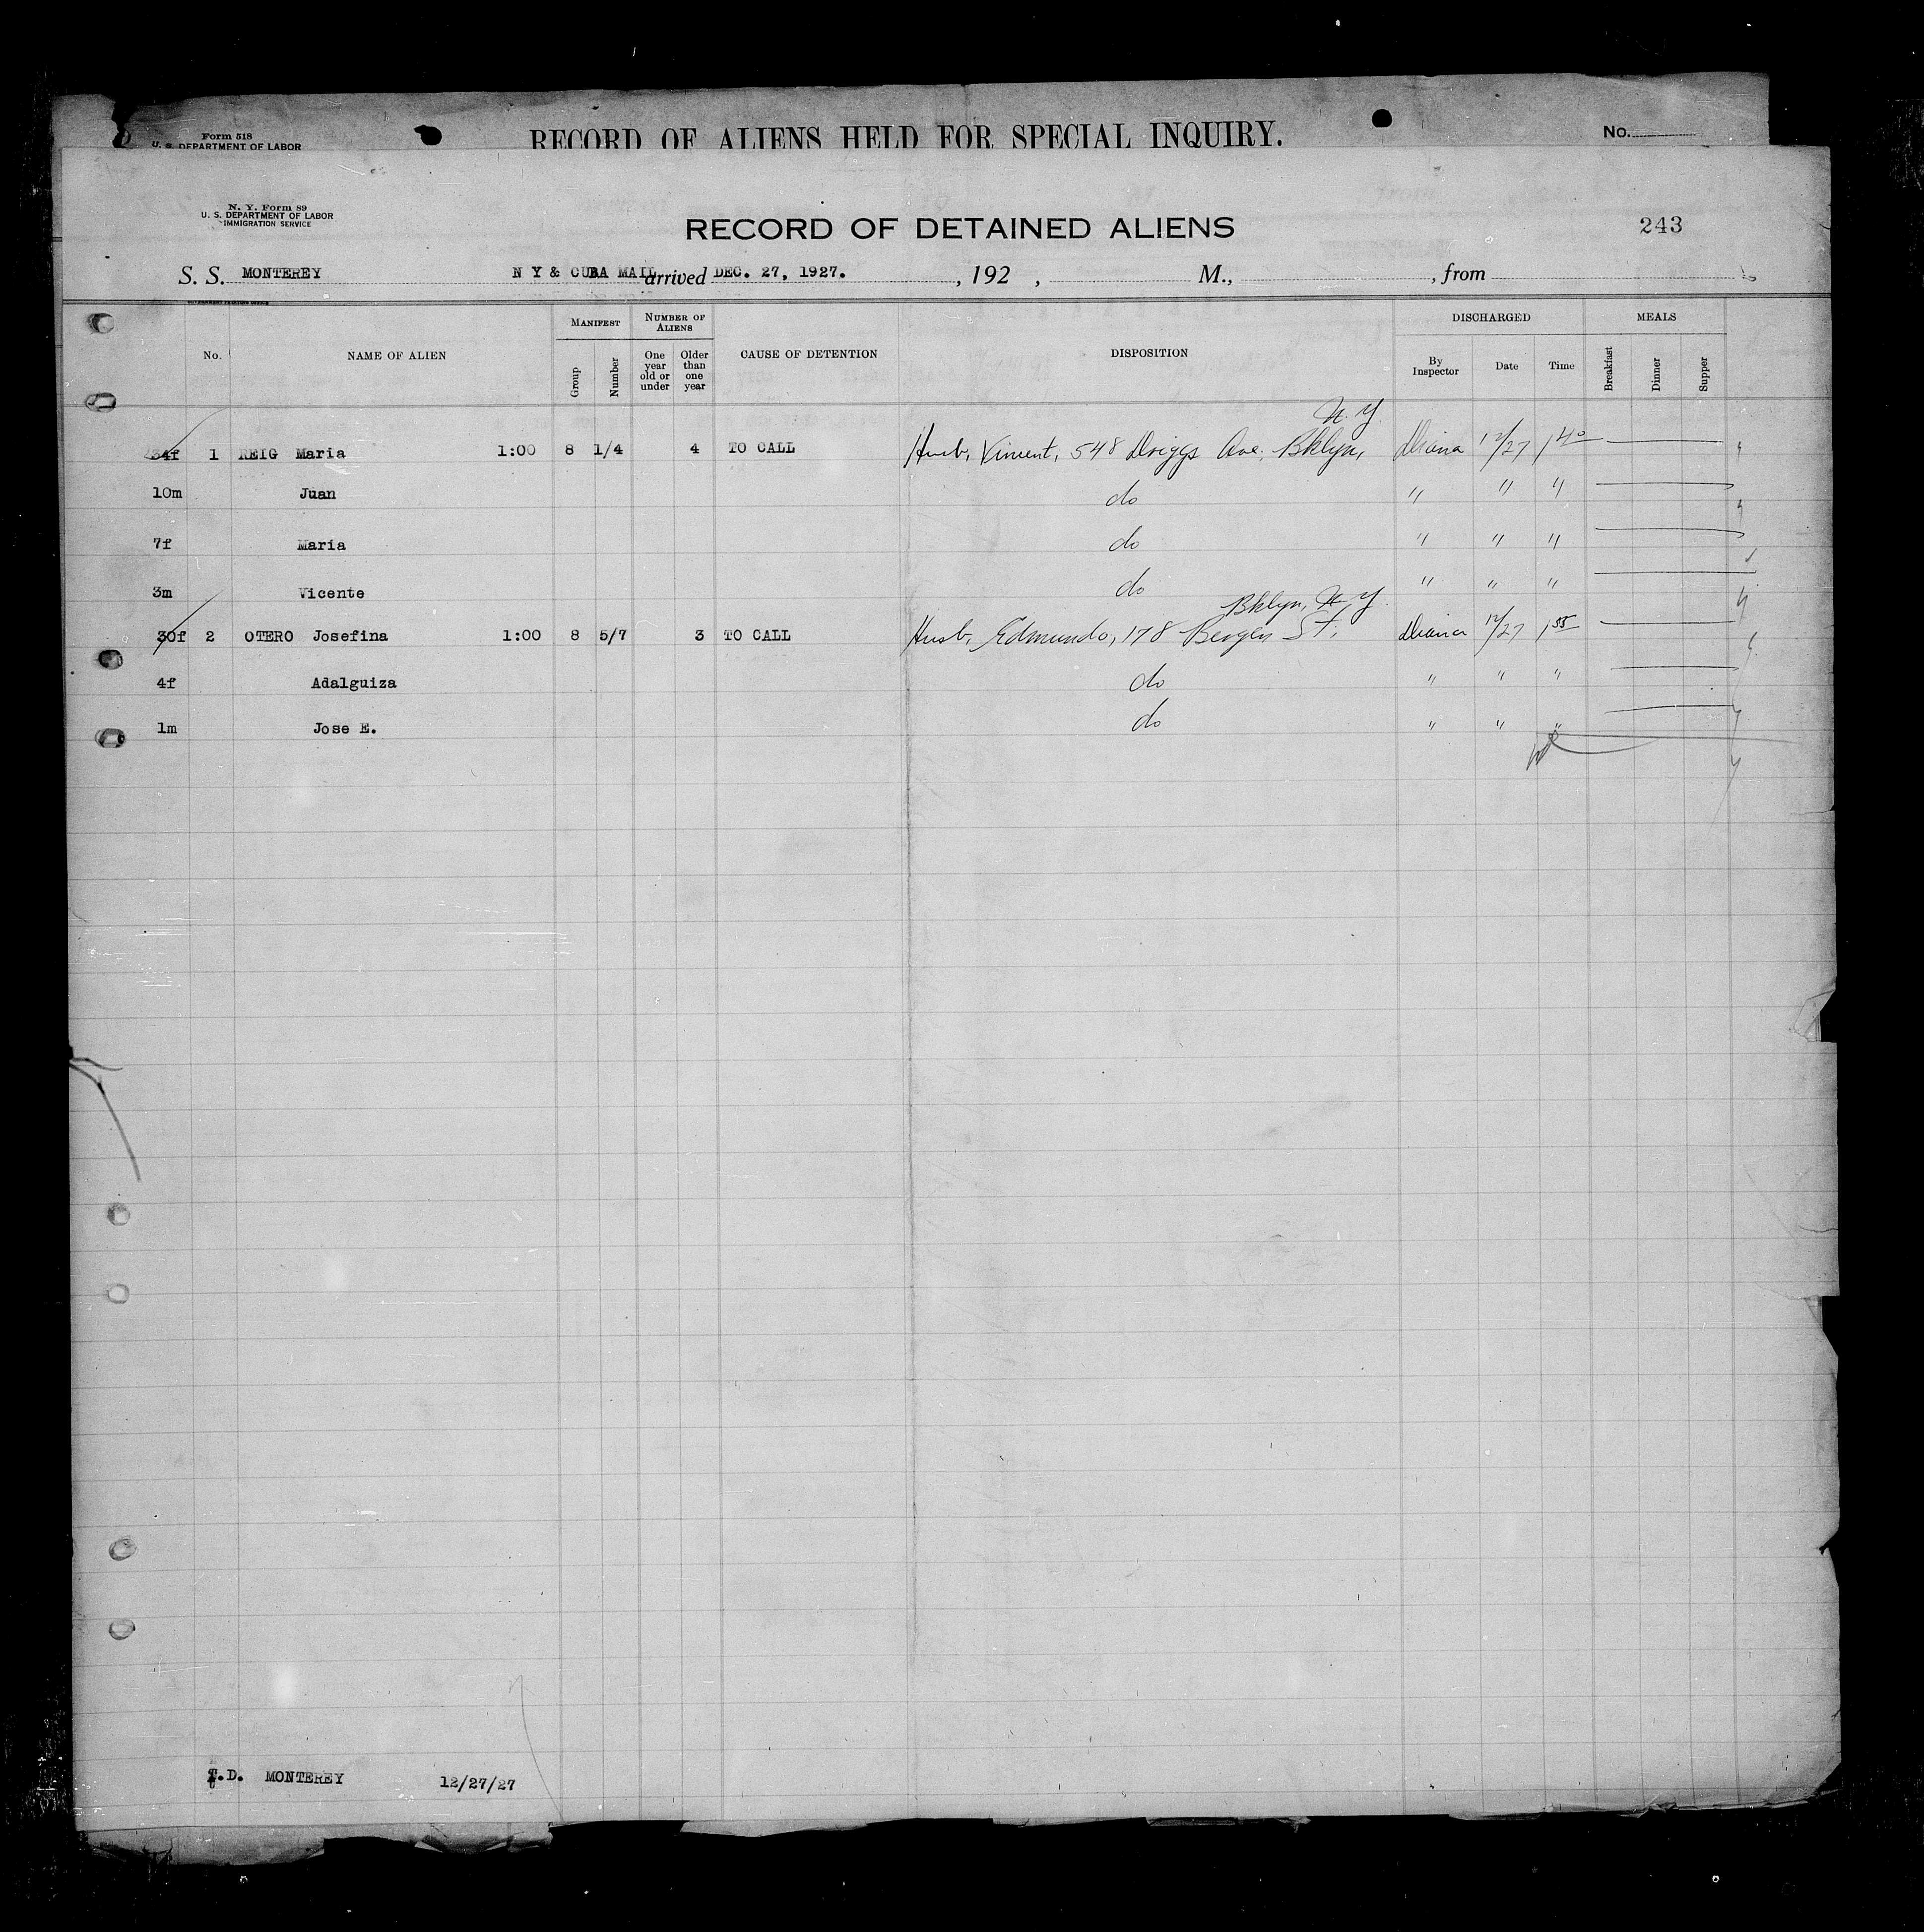 Form 518
U. S. DEPARTMENT OF LABOR
RECORD OF ALIENS HELD FOR SPECIAL INQUIRY.
No.
N. Y. Form 89
U. S. DEPARTMENT OF LABOR
IMMIGRATION SERVICE
RECORD OF DETAINED ALIENS
243
S. S. MONTEREY N Y & CUBA MAIL arrived DEC. 27, 1927. , 192 , M., , from
No. NAME OF ALIEN MANIFEST Group Number NUMBER OF ALIENS One year old or under Older than one year CAUSE OF DETENTION DISPOSITION DISCHARGED By Inspector Date Time MEALS Breakfast Dinner Supper
N. Y.
34f 1 REIG Maria 1:00 8 1/4 4 TO CALL Husb, Vincent, 548 Driggs Ave. Bklyn, 12/27 1 40
10m Juan do " " "
7f Maria do " " "
3m Vicente do " " "
Bklyn, N. Y.
30f 2 OTERO Josefina 1:00 8 5/7 3 TO CALL Husb, Edmundo, 178 Bergen St. 12/27 1 55
4f Adalguiza do " " "
1m Jose E. do " " "
T.D. MONTEREY 12/27/27